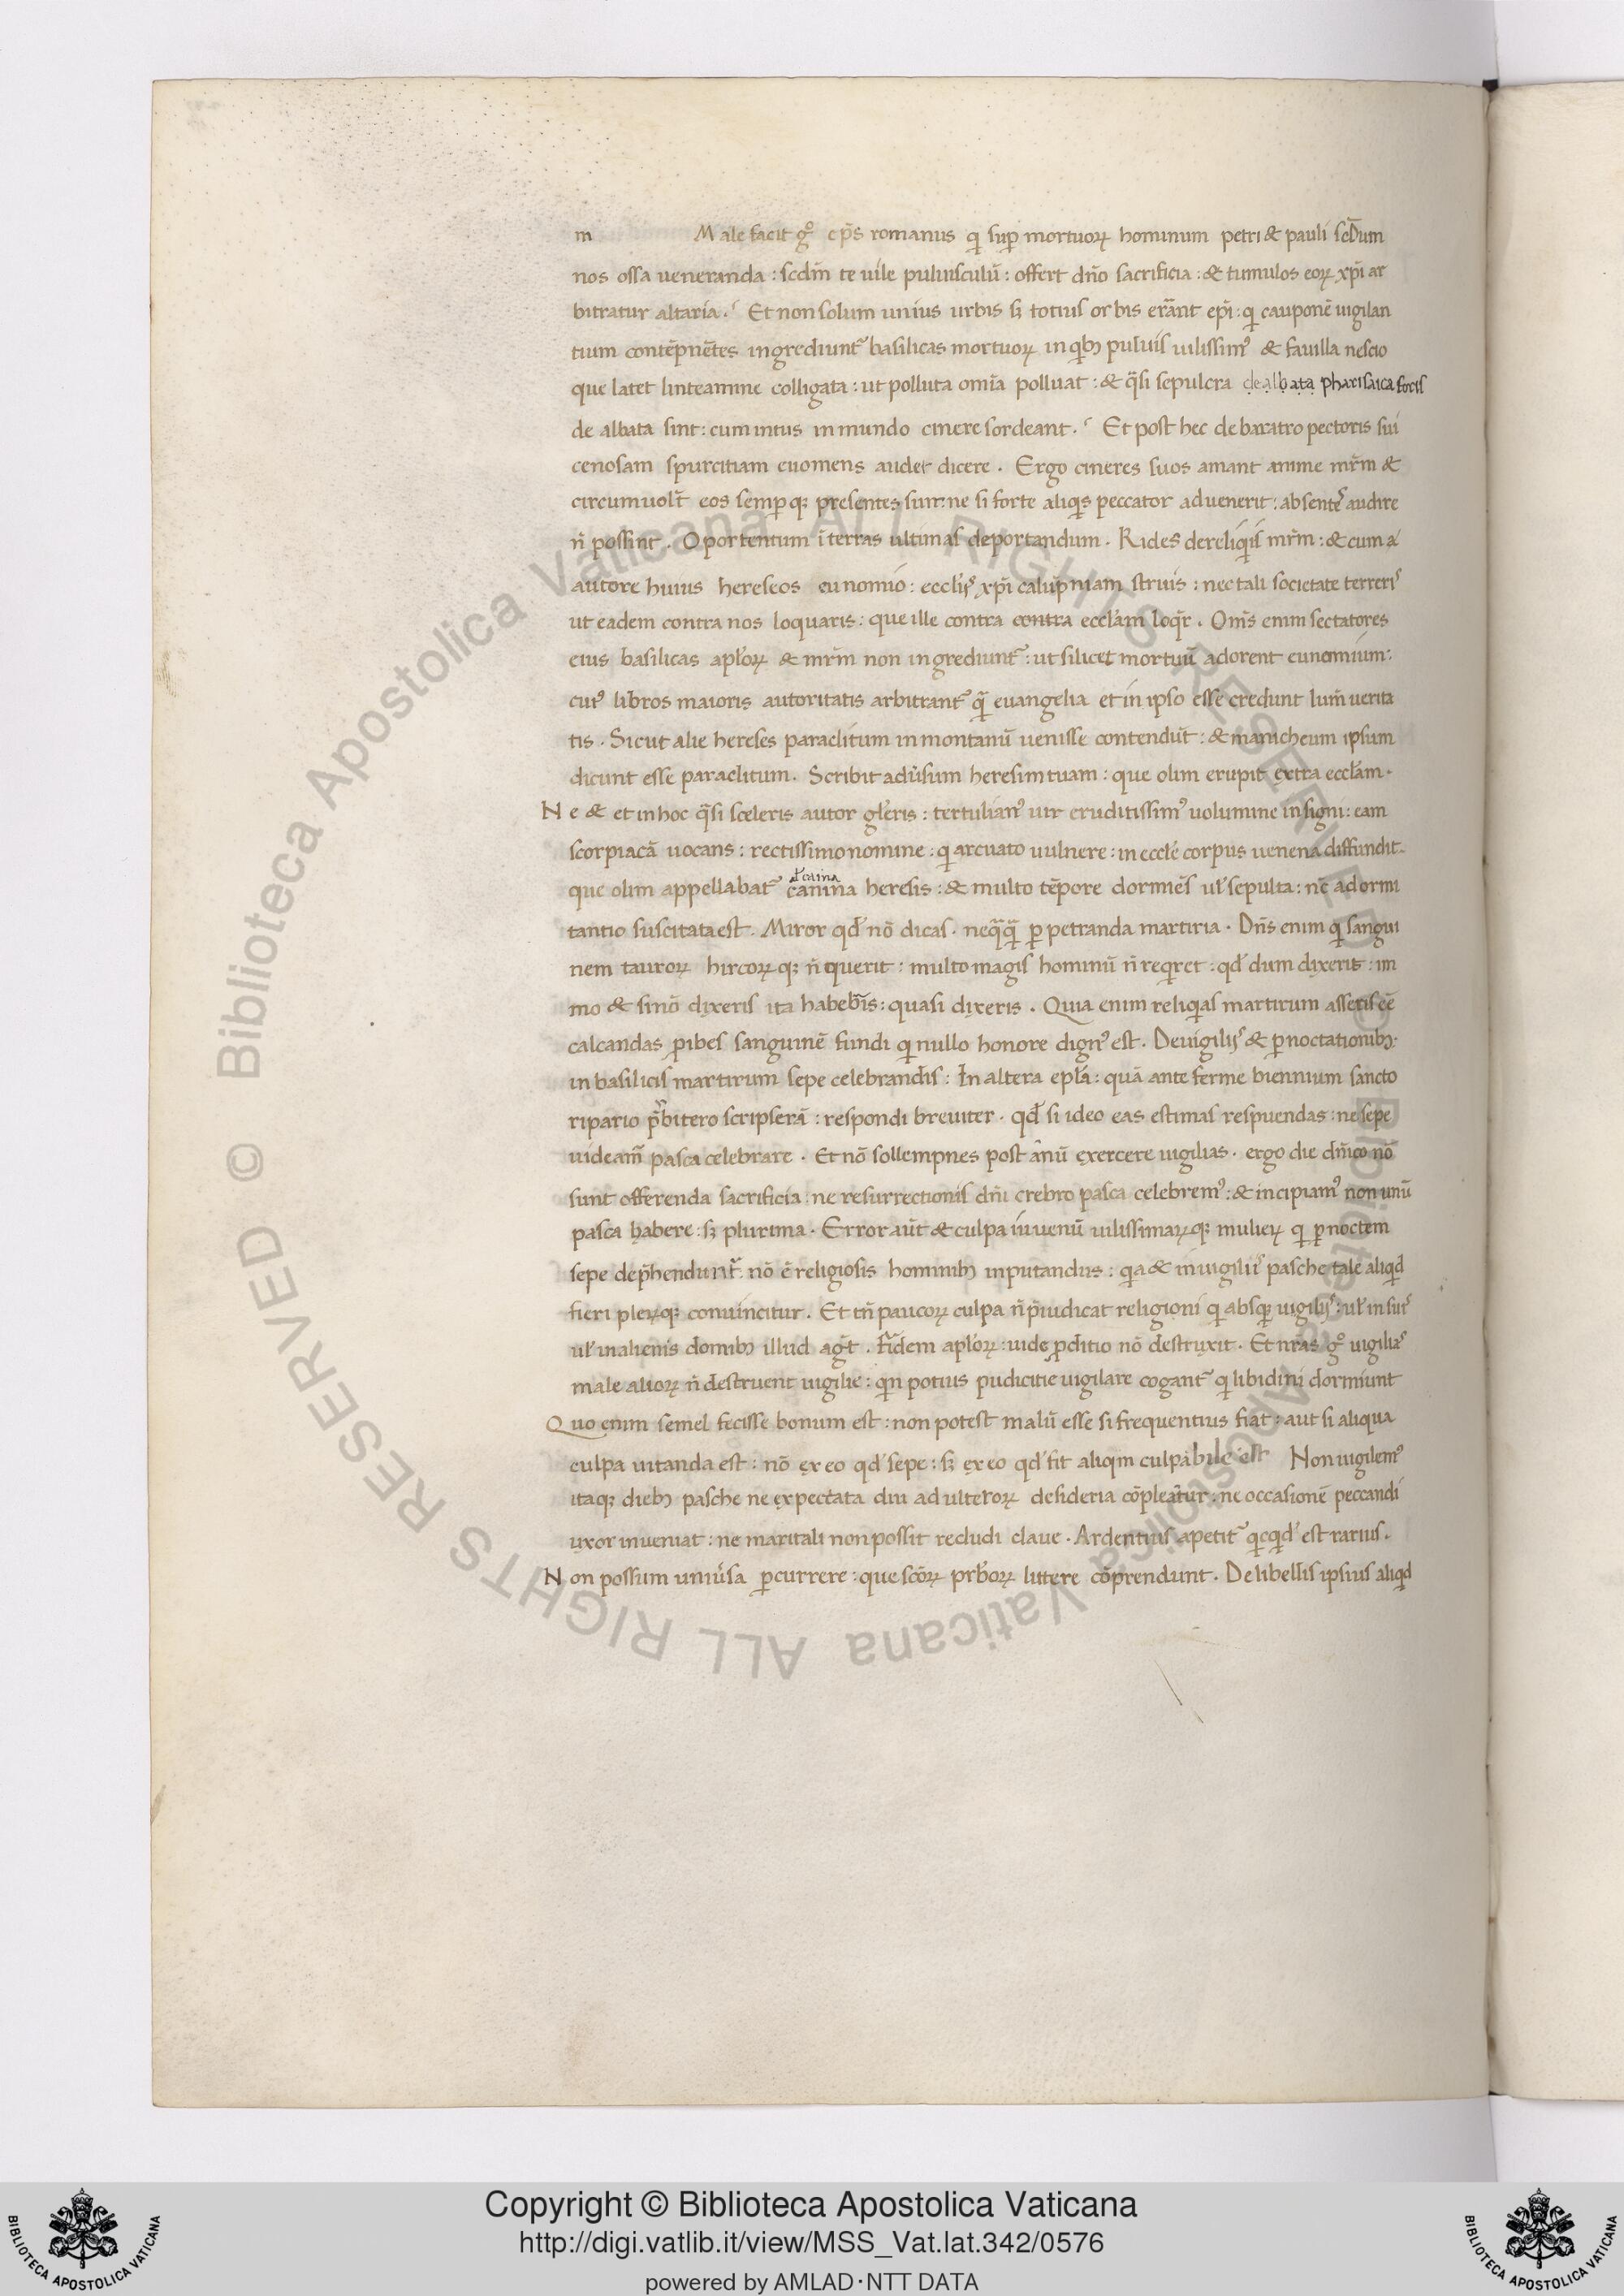 m Male facit gͦ ep̄s romanus qi suꝑ mortuoꝝ hominum petri & pauli scd̄um
nos ossa veneranda : scd̄m te vile pulvisculū : offert dn̄o sacrificia : & tumulos eoꝝ xp̄i ar
bitratur altaria . Et non solum unius urbis sꝫ totius orbis errānt ep̄i : qi cauponē vigilan
tium contēpnētes ingrediunt᷑ basilicas mortuoꝝ in qibꝫ pulvis vilissimꝰ & favilla nescio
que latet linteamine colligata : ut polluta omīa polluat : & qͣsi sepulcra dealbata pharisaica foris
de albata sint : cum intus in mundo cinere sordeant . Et post hec de baratro pectoris sui
cenosam spurcitiam evomens audet dicere . Ergo cineres suos amant anime mr̄m &
circumvolāt eos semꝑqꝫ presentes sunt : ne si forte aliqis peccator advenerit : absentes audire
n̄ possint . O portentum ī terras ultimas deportandum . Rides de reliqis mr̄m : & cum a
autore huius hereseos eunomio : eccl̄is xp̄i calūpniam struis : nec tali societate terreris
ut eadem contra nos loquaris : que ille contra contra eccl̄am loqr̄ . Om̄s enim sectatores
eius basilicas apl̄oꝝ & mr̄m non ingrediunt᷑ : ut silicet mortuū adorent eunomium :
cuiꝰ libros maioris autoritatis arbitrant᷑ qͣ evangelia et in ipso esse credunt lum̄ verita
tis . Sicut alie hereses paraclitum in montanū venisse contendūt : & manicheum ipsum
dicunt esse paraclitum . Scribit adv̄sum heresim tuam : que olim erupit extra eccl̄am .
N e & et in hoc qͣsi sceleris autor gl̄eris : tertulianꝰ vir eruditissimꝰ volumine insigni : eam
scorpiacā vocans : rectissimo nomine : qi arcuato vulnere : in eccl̄e corpus venena diffundit .
que olim appellabat᷑ canina ał caina heresis : & multo tēpore dormiēs vl̄ sepulta : nc̄ a dormi
tantio suscitata est . Miror qd̄ nō dicas . neqͣqͣ ꝑpetranda martiria . Dn̄s enim qi sangui
nem tauroꝝ hircoꝝqꝫ n̄ querit : multo magis hominū n̄ reqiret : qd̄ dum dixeris : im
mo & si nō dixeris ita habeb̄is : quasi dixeris . Quia enim reliqias martirum asseris eē
calcandas ꝓhibes sanguinē fundi qi nullo honore dignꝰ est . De vigilijs & ꝑnoctationibꝫ .
in basilicis martirum sepe celebrandis : In altera epl̄a : quā ante ferme biennium sancto
ripario pr̄bitero scripserā : respondi breviter . qd̄ si ideo eas estimas respuendas : ne sepe
videam᷑ pasca celebrare . Et nō sollempnes post ānū exercere vigilias . ergo die dn̄ico nō
sunt offerenda sacrificia : ne resurrectionis dn̄i crebro pasca celebremꝰ : & incipiamꝰ non unū
pasca habere : sꝫ plurima . Error aūt & culpa iuvenū vilissimaꝝqꝫ mulieꝝ qi ꝑ noctem
sepe dep̄hendunt᷑ . nō ē religiosis hominibꝫ inputandus : qia & in vigilijs pasche tale aliqid
fieri pleꝝqꝫ convincitur . Et tn̄ paucoꝝ culpa n̄ p̄iudicat religioni qi absqꝫ vigilijs : vl̄ in suis
vl̄ in alienis domibꝫ illud agūt . fidem apl̄oꝝ : iude ꝓditio nō destruxit . Et nr̄as gͦ vigilias
male alioꝝ n̄ destruent vigilie : qin potius pudicitie vigilare cogant᷑ qi libidini dormiunt
Q uo enim semel fecisse bonum est : non potest malū esse si frequentius fiat : aut si aliqua
culpa vitanda est : nō ex eo qd̄ sepe : sꝫ ex eo qd̄ fit aliqin culpabile est Non vigilemꝰ
itaqꝫ diebꝫ pasche ne expectata diu adulteroꝝ desideria cōpleātur : ne occasionē peccandi
uxor inveniat : ne maritali non possit recludi clave . Ardentius apetit᷑ qicqid est rarius .
N on possum univ̄sa ꝑcurrere : que scōꝝ prb̄oꝝ littere cōprendunt . De libellis ipsius aliqid
Copyright © Biblioteca Apostolica Vaticana
http://digi.vatlib.it/view/MSS_Vat.lat.342/0576
powered by AMLAD·NTT DATA
BIBLIOTECA APOSTOLICA VATICANA
BIBLIOTECA APOSTOLICA VATICANA
© Biblioteca Apostolica Vaticana ALL RIGHTS RESERVED
© Biblioteca Apostolica Vaticana ALL RIGHTS RESERVED